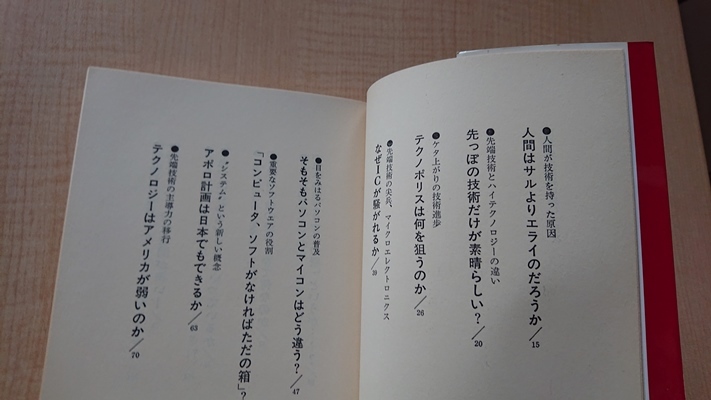 ●人間が技術を持った原因
人間はサルよりエライのだろうか／15
●先端技術とハイテクノロジーの違い
先っぽの技術だけが素晴らしい？／20
●ケタ上がりの技術進歩
テクノポリスは何を狙うのか／26
●先端技術の尖兵、マイクロエレクトロニクス
なぜICが騒がれるか／39
●目をみはるパソコンの普及
そもそもパソコンとマイコンはどう違う？／47
●重要なソフトウエアの役割
「コンピュータ、ソフトがなければただの箱」？
●〝システム〟という新しい概念
アポロ計画は日本でもできるか／63
●先端技術の主導力の移行
テクノロジーはアメリカが弱いのか／70